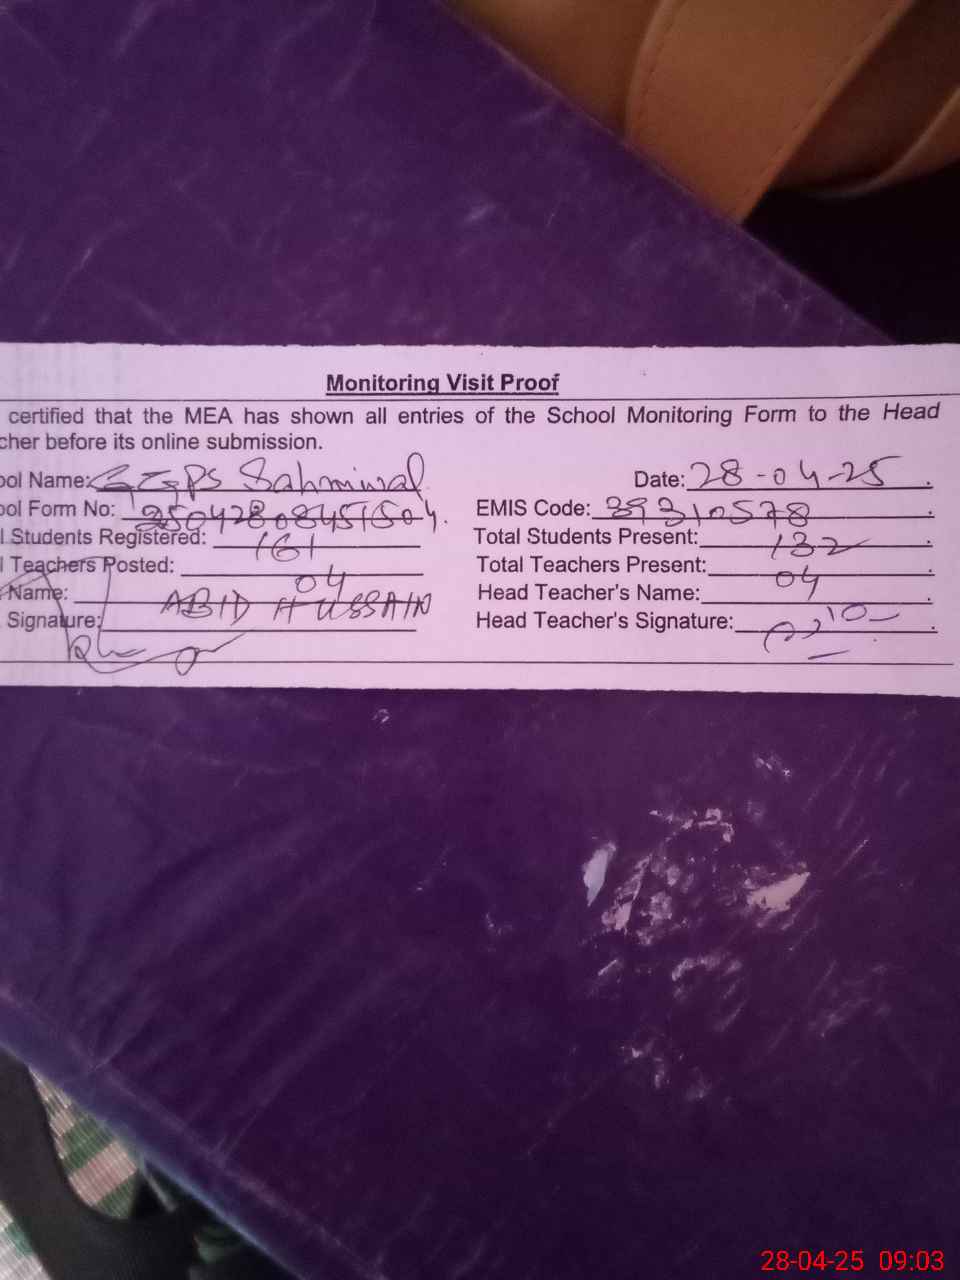 Monitoring Visit Proof
certified that the MEA has shown all entries of the School Monitoring Form to the Head
cher before its online submission.
ool Name: GGPS Sahmiwal Date: 28-04-25
ool Form No: EMIS Code: 39310578
l Students Registered: 161 Total Students Present: 132
l Teachers Posted: 04 Total Teachers Present: 04
Name: ABID HUSSAIN Head Teacher's Name:
Signature: Head Teacher's Signature:
28-04-25 09:03